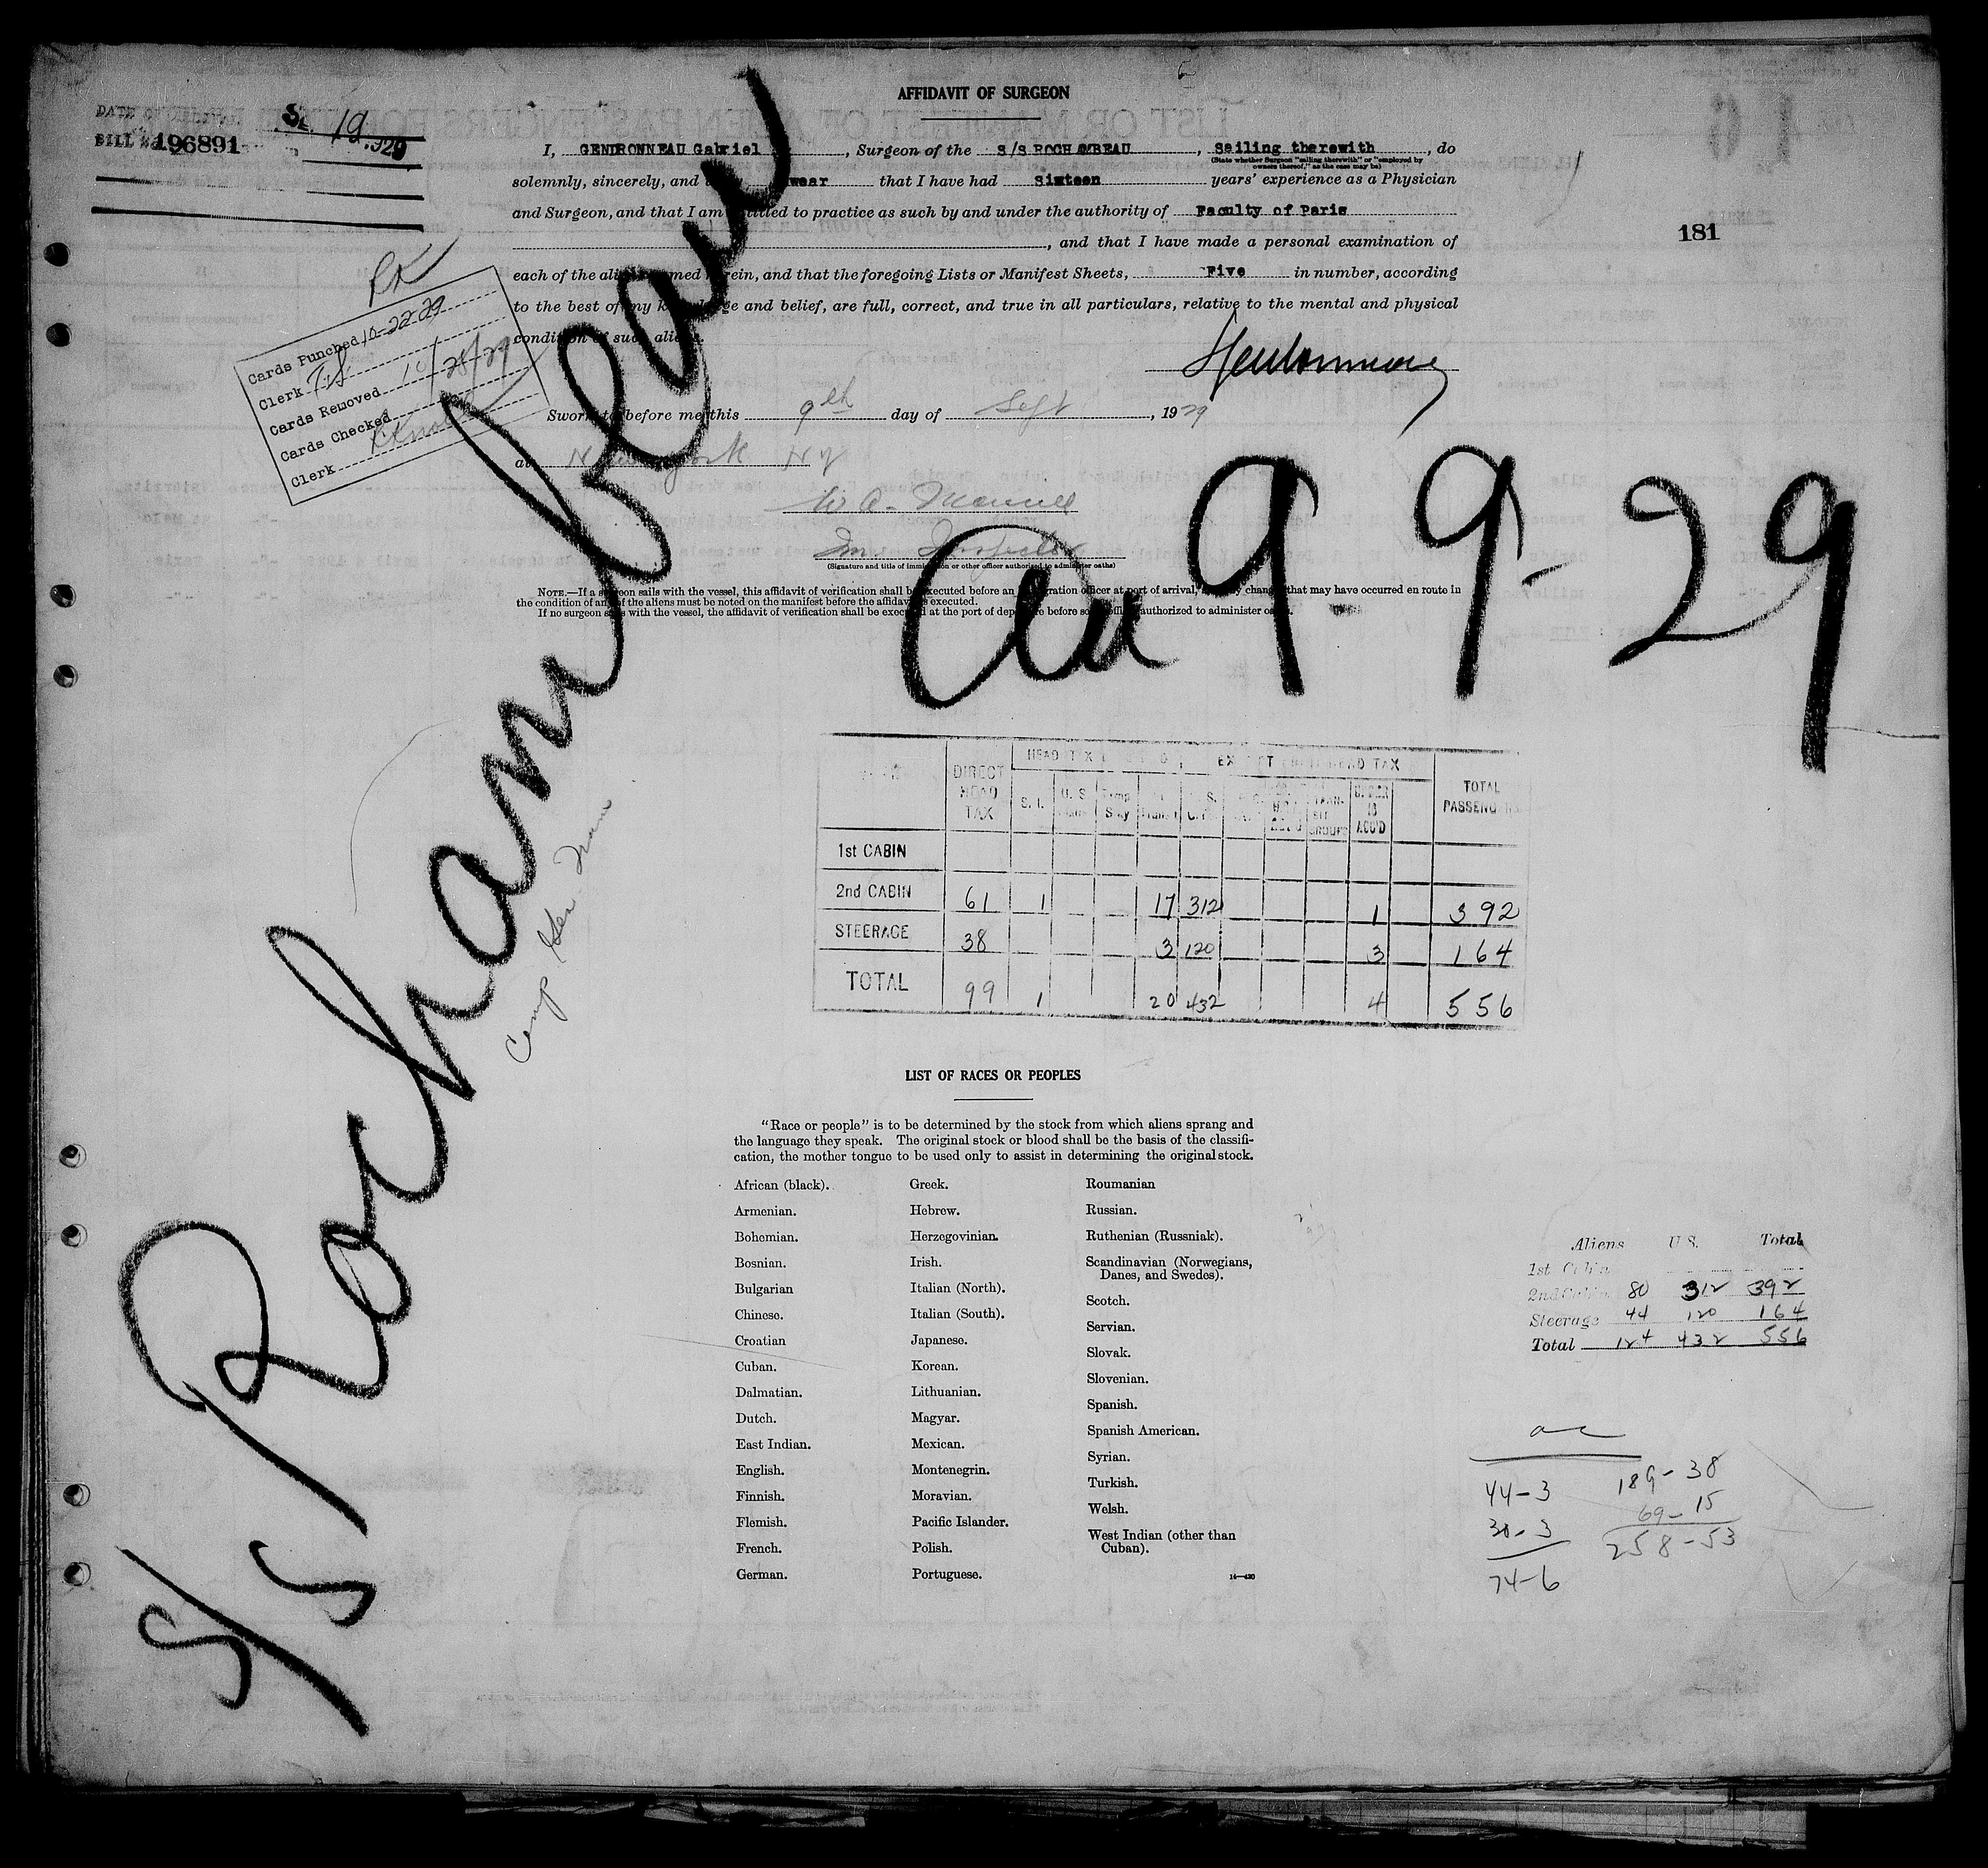 AFFIDAVIT OF SURGEON
DATE OF ARRIVAL Se. 19 .929
BILL No. 196891
I, GENDRONNEAU Gabriel, Surgeon of the S/S ROCHAMBEAU, Sailing therewith, do
(State whether Surgeon "sailing therewith" or "employed by
owners thereof," as the case may be)
solemnly, sincerely, and swear that I have had Sixteen years' experience as a Physician
and Surgeon, and that I am entitled to practice as such by and under the authority of Faculty of Paris
, and that I have made a personal examination of
181
each of the aliens named herein, and that the foregoing Lists or Manifest Sheets, Five in number, according
to the best of my knowledge and belief, are full, correct, and true in all particulars, relative to the mental and physical
condition of such aliens.
RK
Cards Punched 10-22-29
Clerk
Cards Removed 10/28/29
Cards Checked
Clerk
Sworn to before me this 9th day of Sept, 1929
at New York NY
Im. Inspector
(Signature and title of immigration or other officer authorized to administer oaths)
NOTE.—If a surgeon sails with the vessel, this affidavit of verification shall be executed before an immigration officer at port of arrival, any change that may have occurred en route in
the condition of any of the aliens must be noted on the manifest before the affidavit is executed.
If no surgeon sails with the vessel, the affidavit of verification shall be executed at the port of departure before some officer authorized to administer oaths.
S/S Rochambeau
9-9-29
DIRECT HEAD TAX S.I. U.S. Temp Stay U.S. C. UNDER 16 ACC'D TOTAL PASSENGERS
1st CABIN
2nd CABIN 61 1 17 312 1 392
STEERAGE 38 3 120 3 164
TOTAL 99 1 20 432 4 556
LIST OF RACES OR PEOPLES
"Race or people" is to be determined by the stock from which aliens sprang and
the language they speak. The original stock or blood shall be the basis of the classifi-
cation, the mother tongue to be used only to assist in determining the original stock.
African (black).
Armenian.
Bohemian.
Bosnian.
Bulgarian
Chinese.
Croatian
Cuban.
Dalmatian.
Dutch.
East Indian.
English.
Finnish.
Flemish.
French.
German.
Greek.
Hebrew.
Herzegovinian.
Irish.
Italian (North).
Italian (South).
Japanese.
Korean.
Lithuanian.
Magyar.
Mexican.
Montenegrin.
Moravian.
Pacific Islander.
Polish.
Portuguese.
Roumanian
Russian.
Ruthenian (Russniak).
Scandinavian (Norwegians,
Danes, and Swedes).
Scotch.
Servian.
Slovak.
Slovenian.
Spanish.
Spanish American.
Syrian.
Turkish.
Welsh.
West Indian (other than
Cuban).
14—430
Aliens U.S. Total
1st Cabin
2nd Cabin 80 312 392
Steerage 44 120 164
Total 124 432 556
44-3 189-38
30-3 69-15
74-6 258-53